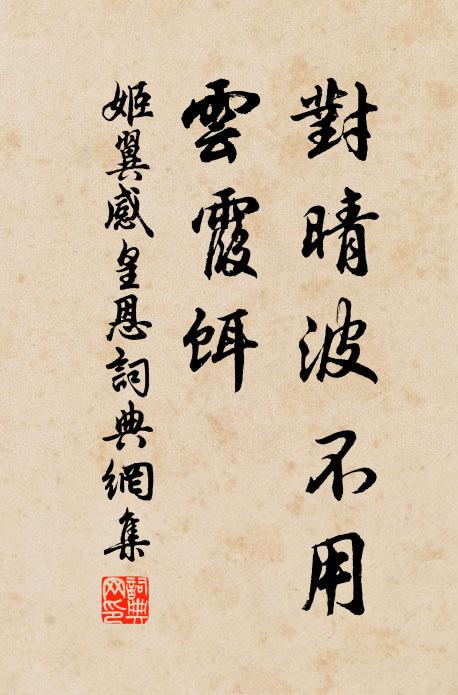 對晴波不用
雲霞餌
姬翼感皇恩詞典網集
詞典网印